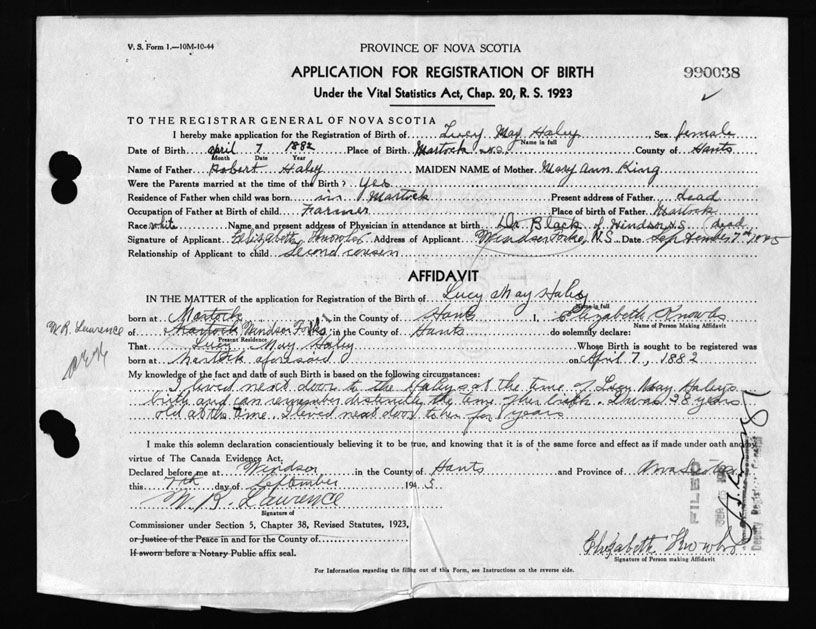 V. S. Form 1.—10M-10-44
PROVINCE OF NOVA SCOTIA
APPLICATION FOR REGISTRATION OF BIRTH
990038
Under the Vital Statistics Act, Chap. 20, R. S. 1923
TO THE REGISTRAR GENERAL OF NOVA SCOTIA
I hereby make application for the Registration of Birth of Lucy May Haley, Sex female
Name in full
Date of Birth april 7 1882 Place of Birth Martock N.S. County of Hants
Month Date Year
Name of Father Robert Haley MAIDEN NAME of Mother Mary Ann King
Were the Parents married at the time of the Birth? Yes
Residence of Father when child was born in Martock Present address of Father dead
Occupation of Father at Birth of child Farmer Place of birth of Father Martock
Race white Name and present address of Physician in attendance at birth Dr Black of Windsor, N.S. dead
Signature of Applicant Elizabeth Knowles Address of Applicant Windsor Forks, N.S. Date September 7th 1945
Relationship of Applicant to child Second cousin
AFFIDAVIT
IN THE MATTER of the application for Registration of the Birth of Lucy May Haley
Name in full
born at Martock in the County of Hants I, Elizabeth Knowles
Name of Person Making Affidavit
W.R. Lawrence
of Martock Windsor Forks in the County of Hants do solemnly declare:
Present Residence
That Lucy May Haley Whose Birth is sought to be registered was
born at Martock aforesaid on April 7, 1882
My knowledge of the fact and date of such Birth is based on the following circumstances:
I lived next door to the Haleys at the time of Lucy May Haley's
birth and can remember distinctly the time of her birth. I was 28 years
old at the time. I lived next door to her for 8 years
I make this solemn declaration conscientiously believing it to be true, and knowing that it is of the same force and effect as if made under oath and by
virtue of The Canada Evidence Act.
Declared before me at Windsor in the County of Hants and Province of Nova Scotia
this 7th day of September 1945
W. R. Lawrence
Signature of
Commissioner under Section 5, Chapter 38, Revised Statutes, 1923,
or Justice of the Peace in and for the County of
If sworn before a Notary Public affix seal.
Elizabeth Knowles
Signature of Person making Affidavit
FILED
Deputy Registrar General
For Information regarding the filling out of this Form, see Instructions on the reverse side.